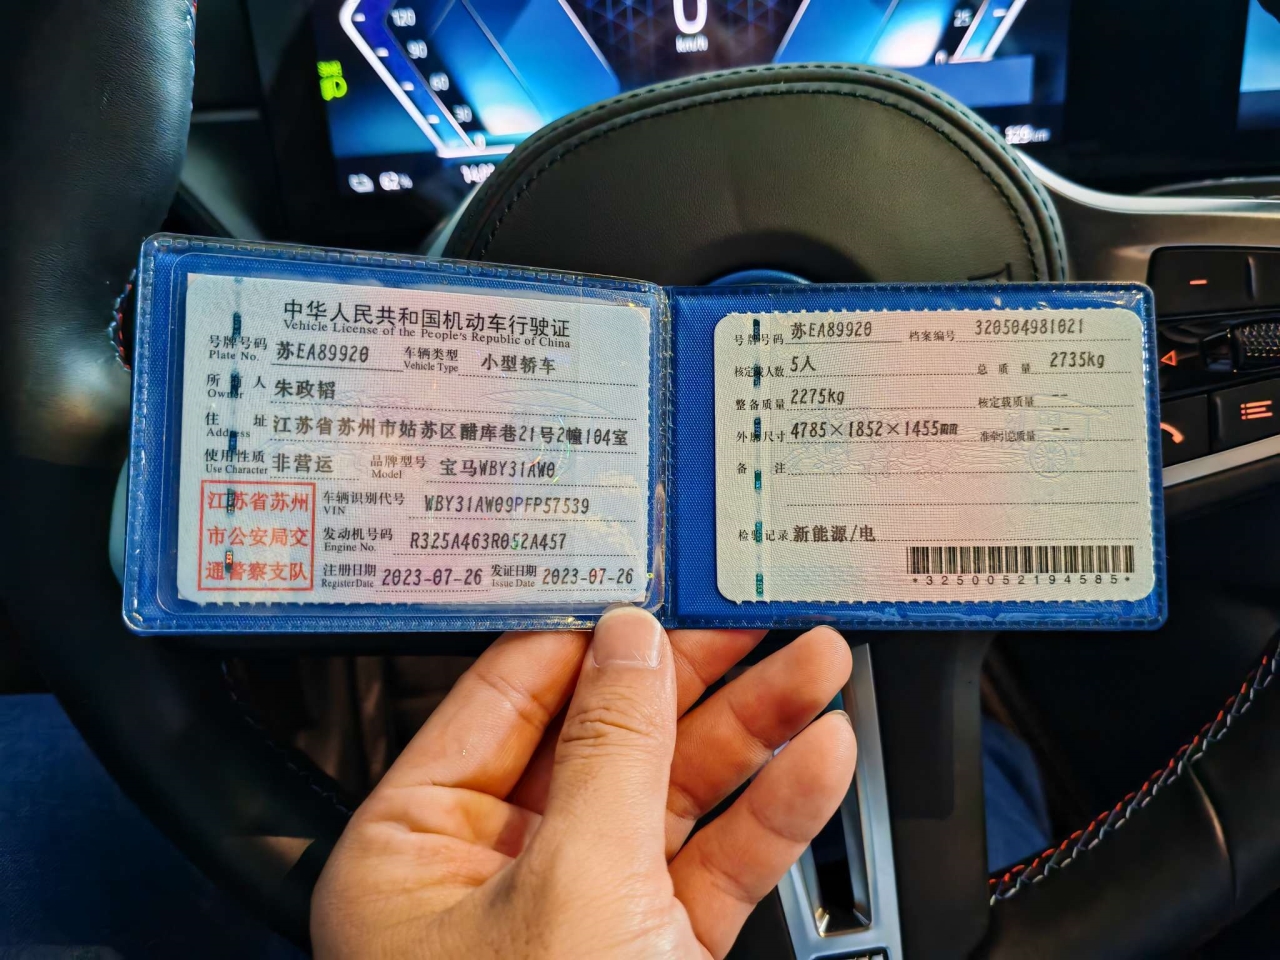 120
90
60
30
0
0
km/h
25
0
62%
中华人民共和国机动车行驶证
Vehicle License of the People's Republic of China
号牌号码 苏EA89920 车辆类型 小型轿车
Plate No. Vehicle Type
所有人 朱政韬
Owner
住址 江苏省苏州市姑苏区醋库巷21号2幢104室
Address
使用性质 非营运 品牌型号 宝马WBY31AW0
Use Character Model
江苏省苏州
市公安局交
通警察支队
车辆识别代号 WBY31AW09PFP57539
VIN
发动机号码 R325A463R052A457
Engine No.
注册日期 2023-07-26 发证日期 2023-07-26
Register Date Issue Date
号牌号码 苏EA89920 档案编号 320504981021
核定载人数 5人 总质量 2735kg
整备质量 2275kg 核定载质量 --
外廓尺寸 4785×1852×1455mm 准牵引总质量 --
备注
检验记录 新能源/电
*3250052194585*